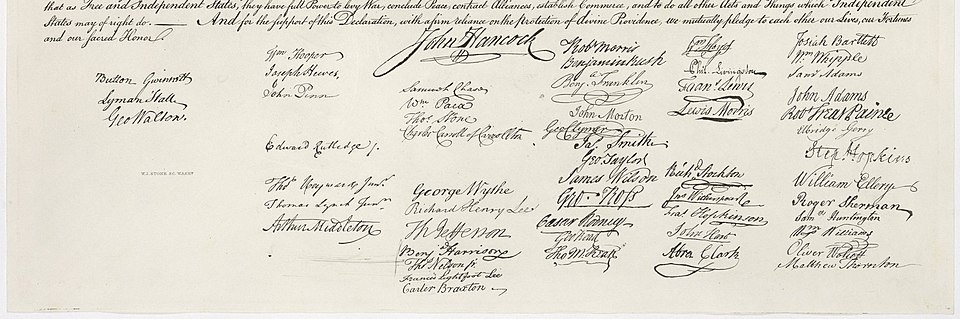 that as Free and Independent States, they have full Power to levy War, conclude Peace, contract Alliances, establish Commerce, and to do all other Acts and Things which Independent
States may of right do. — And for the support of this Declaration, with a firm reliance on the protection of divine Providence, we mutually pledge to each other our Lives, our Fortunes
and our sacred Honor.
Button Gwinnett
Lyman Hall
Geo Walton.
W.J. STONE SC. WASHN
Wm Hooper
Joseph Hewes,
John Penn
Edward Rutledge /.
Thos Heyward Junr.
Thomas Lynch Junr.
Arthur Middleton
John Hancock
Samuel Chase
Wm Paca
Thos Stone
Charles Carroll of Carrollton
George Wythe
Richard Henry Lee
Th Jefferson
Benja Harrison
Thos Nelson jr.
Francis Lightfoot Lee
Carter Braxton
Robt Morris
Benjamin Rush
Benja Franklin
John Morton
Geo Clymer
Jas. Smith
Geo. Taylor
James Wilson
Geo. Ross
Caesar Rodney
Geo Read
Tho M:Kean
Wm Floyd
Phil. Livingston
Frans. Lewis
Lewis Morris
Richd. Stockton
Jno Witherspoon
Fras. Hopkinson
John Hart
Abra Clark
Josiah Bartlett
Wm. Whipple
Saml Adams
John Adams
Robt Treat Paine
Elbridge Gerry
Step. Hopkins
William Ellery
Roger Sherman
Sam el Huntington
Wm Williams
Oliver Wolcott
Matthew Thornton